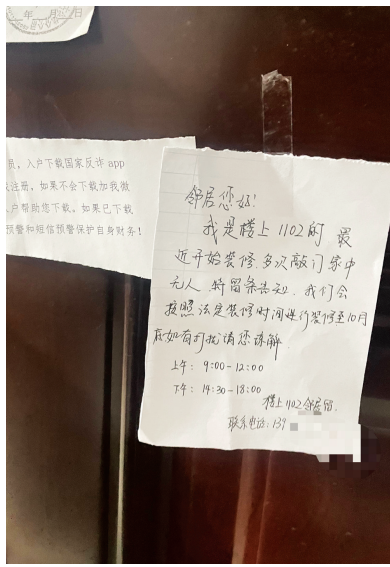 年 月 日
员，入户下载国家反诈app
注册，如果不会下载加我微
户帮助您下载。如果已下载
预警和短信预警保护自身财务！
邻居您好！
我是楼上1102的 最
近开始装修，多次敲门家中
无人，特留条告知，我们会
按照法定装修时间进行装修至10月
底如有可扰请您谅解.
上午：9:00-12:00
下午：14:30-18:00
楼上1102邻居留.
联系电话：139